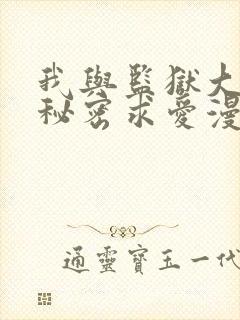 我與監獄大
秘密求愛漫
通靈寶玉一代